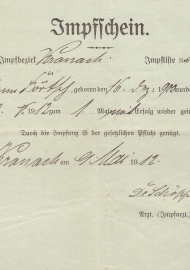 Impfschein.
Impfbezirk Kronach Impfliste No
geboren den 16. Dez. 900
1912 zum 1 Male mit Erfolg wieder geim
Durch die Impfung ist der gesetzlichen Pflicht genügt.
Kronach am 9 Mai 1912.
Arzt. (Impfarzt.)